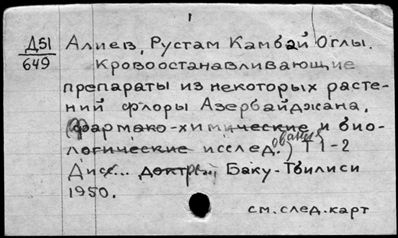 1
Д51
649
Алиев, Рустам Камбай Оглы.
Кровоостанавливающие
препараты из некоторых расте-
ний флоры Азербайджана.
(фармако-химические и био-
логические исслед.ования) Т 1-2
Дис... доктр. Баку-Тбилиси
1950.
см.след.карт